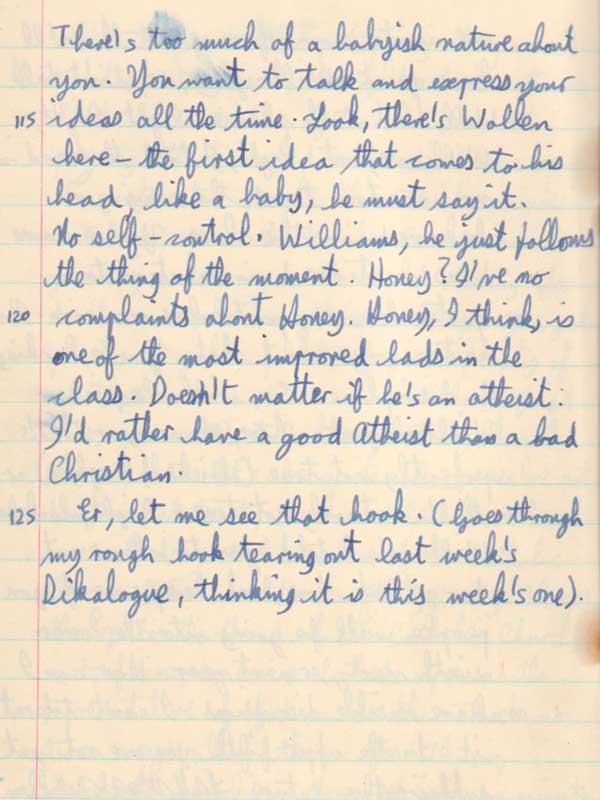 There's too much of a babyish nature about
you. You want to talk and express your
115 ideas all the time. Look, there's Wollen
here - the first idea that comes to his
head, like a baby, he must say it.
No self-control. Williams, he just follows
the thing of the moment. Honey? I've no
120 complaints about Honey. Honey, I think, is
one of the most improved lads in the
class. Doesn't matter if he's an atheist:
I'd rather have a good Atheist than a bad
Christian.
125 Er, let me see that book. (Goes through
my rough book tearing out last week's
Dikalogue, thinking it is this week's one).